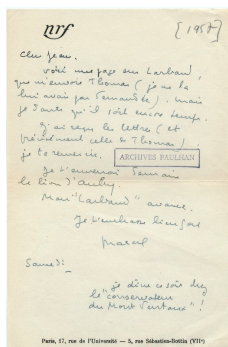 nrf
[1957]
Cher Jean.
voici une page sur Larbaud,
que m'envoie Thomas (je ne la
lui avais pas demandée). Mais
je doute qu'il soit encore temps.
J'ai reçu les lettres (et
précisément celle de Thomas).
je te remercie.
ARCHIVES PAULHAN
Je t'enverrai demain
le livre d'Aubry.
Mon "Larbaud" avance.
Je t'embrasse bien fort
Marcel
Samedi
je dîne ce soir chez
le "conservateur
du Mont Ventoux"!
Paris, 17, rue de l'Université — 5, rue Sébastien-Bottin (VIIe)